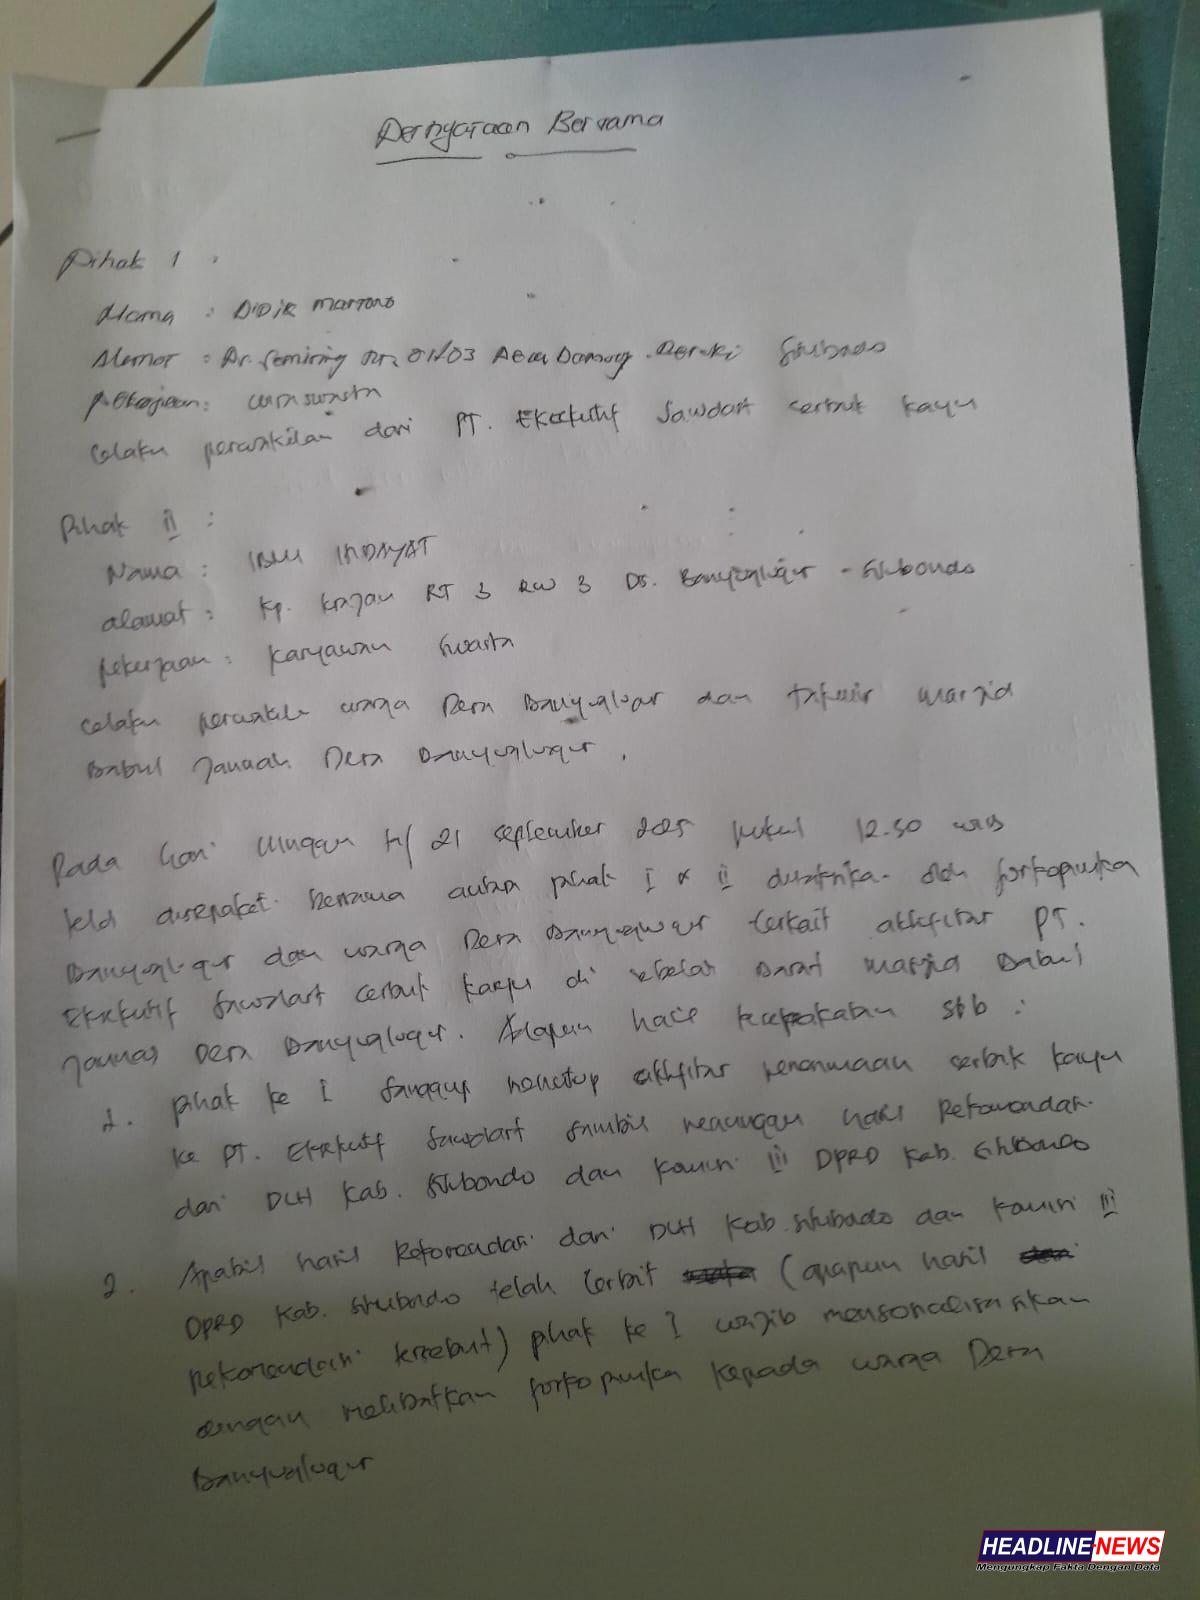 Pernyataan Bersama
Pihak 1 :
Nama : Didik Martono
Alamat : Dr. Semiring RT 01/03 Desa Demung - Besuki Situbondo
Pekerjaan : wiraswasta
Selaku perwakilan dari PT. Eksekutif Sawdust serbuk kayu
Pihak II :
Nama : IBNU HIDAYAT
alamat : Kp. Krajan RT 3 RW 3 Ds. Banyuglugur - Situbondo
pekerjaan : Karyawan Swasta
selaku perwakilan warga Desa Banyuglugur dan takmir masjid
Babul Jannah Desa Banyuglugur.
Pada hari Minggu tgl 21 September 2025 pukul 12.50 WIB
telah disepakati bersama antara pihak I & II oleh forkopimka
Banyuglugur dan warga Desa Banyuglugur terkait aktifitas PT.
Eksekutif Sawdust serbuk kayu di sebelah Barat masjid Babul
Jannah Desa Banyuglugur. Adapun hasil kesepakatan sbb :
1. pihak ke I sanggup menutup aktifitas penerimaan serbuk kayu
ke PT. Eksekutif Sawdust sambil menunggu hasil Rekomendasi
dari DLH Kab. Situbondo dan Komisi III DPRD Kab. Situbondo
2. Apabila hasil Rekomendasi dari DLH Kab. Situbondo dan Komisi III
DPRD Kab. Situbondo telah terbit (apapun hasil
rekomendasi tersebut) pihak ke I wajib mensosialisasikan
dengan melibatkan forkopimka kepada warga Desa
Banyuglugur
HEADLINE-NEWS
Mengungkap Fakta Dengan Data